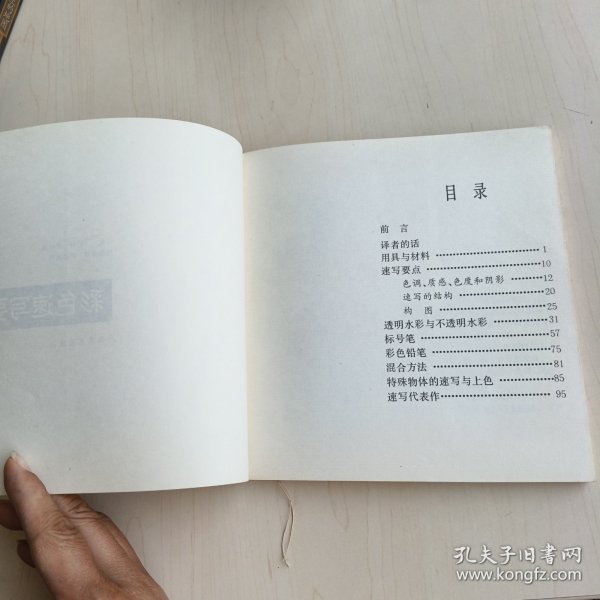 目录
前言
译者的话
用具与材料 ……………………… 1
速写要点 ……………………… 10
色调、质感、色度和阴影 ……… 12
速写的结构 ……………… 20
构图 ……………… 25
透明水彩与不透明水彩 ……………… 31
标号笔 ……………………… 57
彩色铅笔 ……………………… 75
混合方法 ……………………… 81
特殊物体的速写与上色 ……………… 85
速写代表作 ……………………… 95
彩色速写
孔夫子旧书网
www.kongfz.com